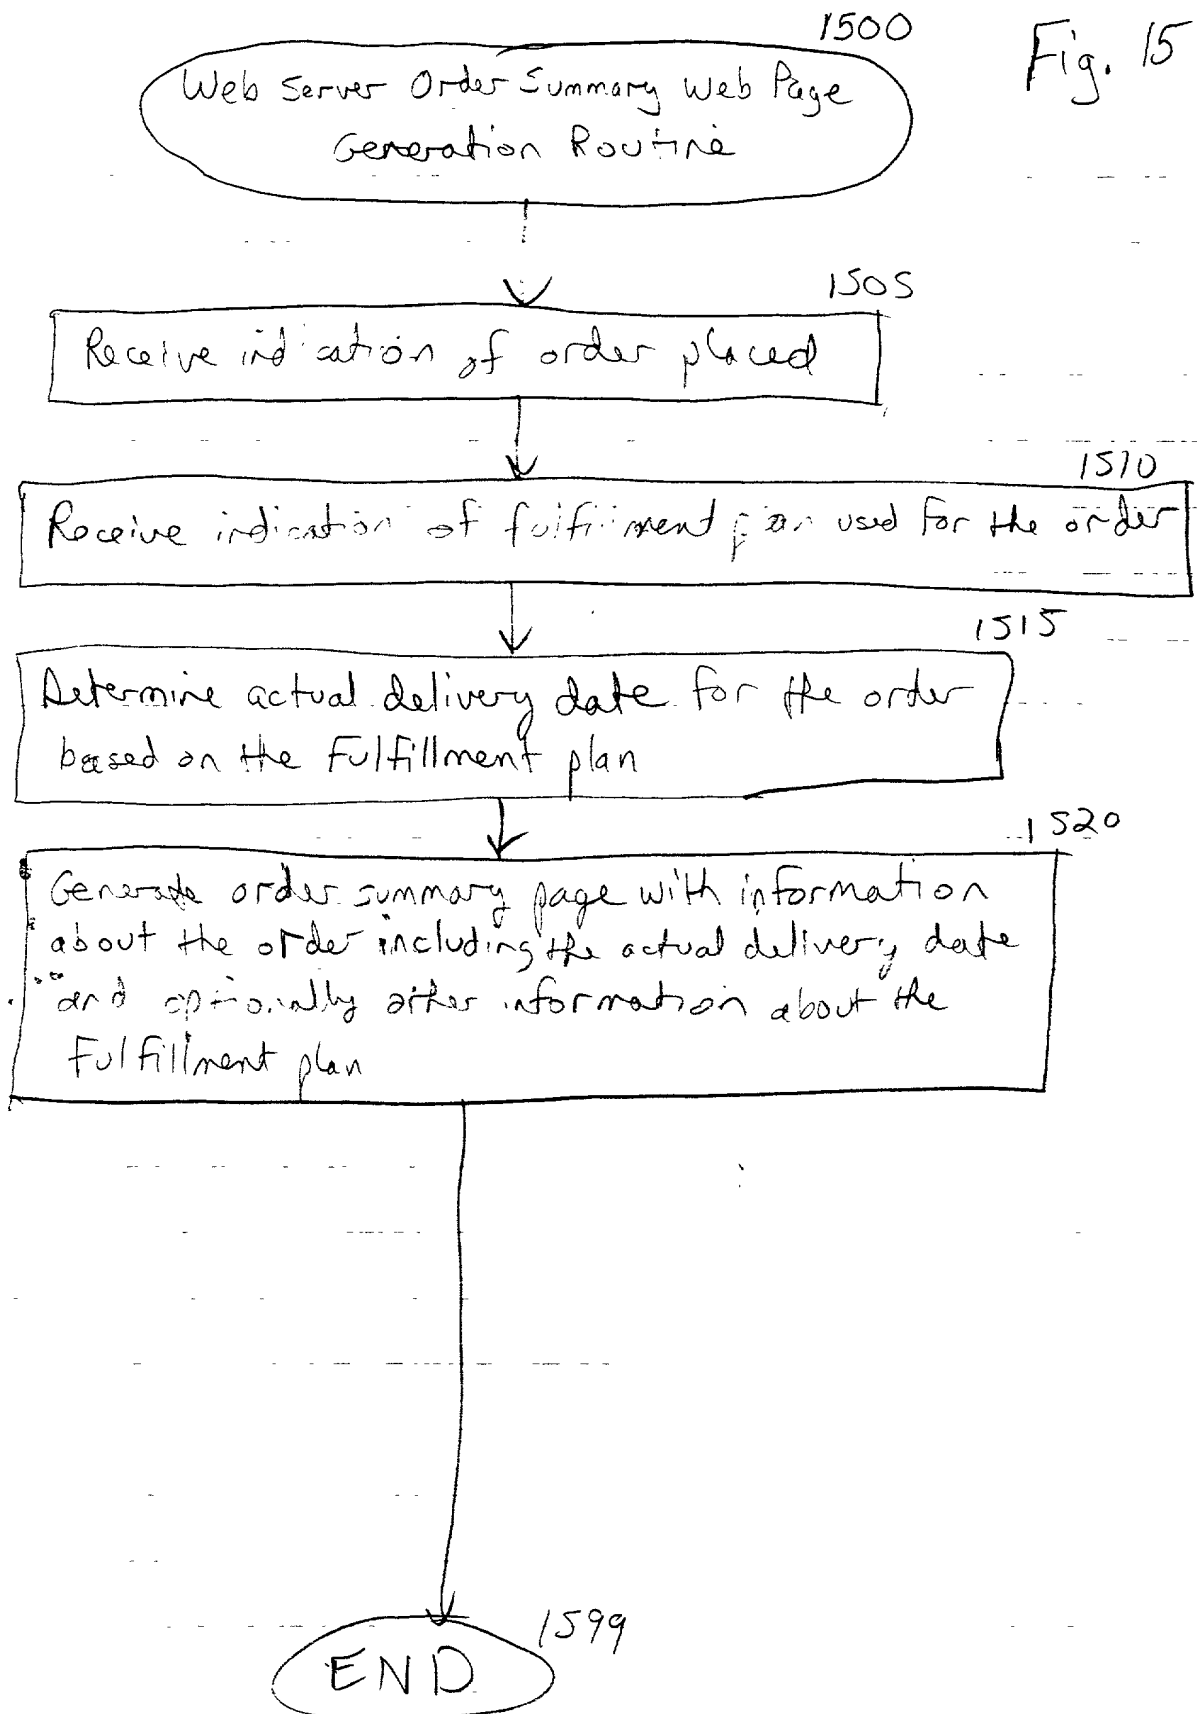 1500
Fig. 15
Web Server Order Summary Web Page
Generation Routine
1505
Receive indication of order placed
1510
Receive indication of fulfillment plan used for the order
1515
Determine actual delivery date for the order
based on the Fulfillment plan
1520
Generate order summary page with information
about the order including the actual delivery date
and optionally other information about the
Fulfillment plan
1599
END